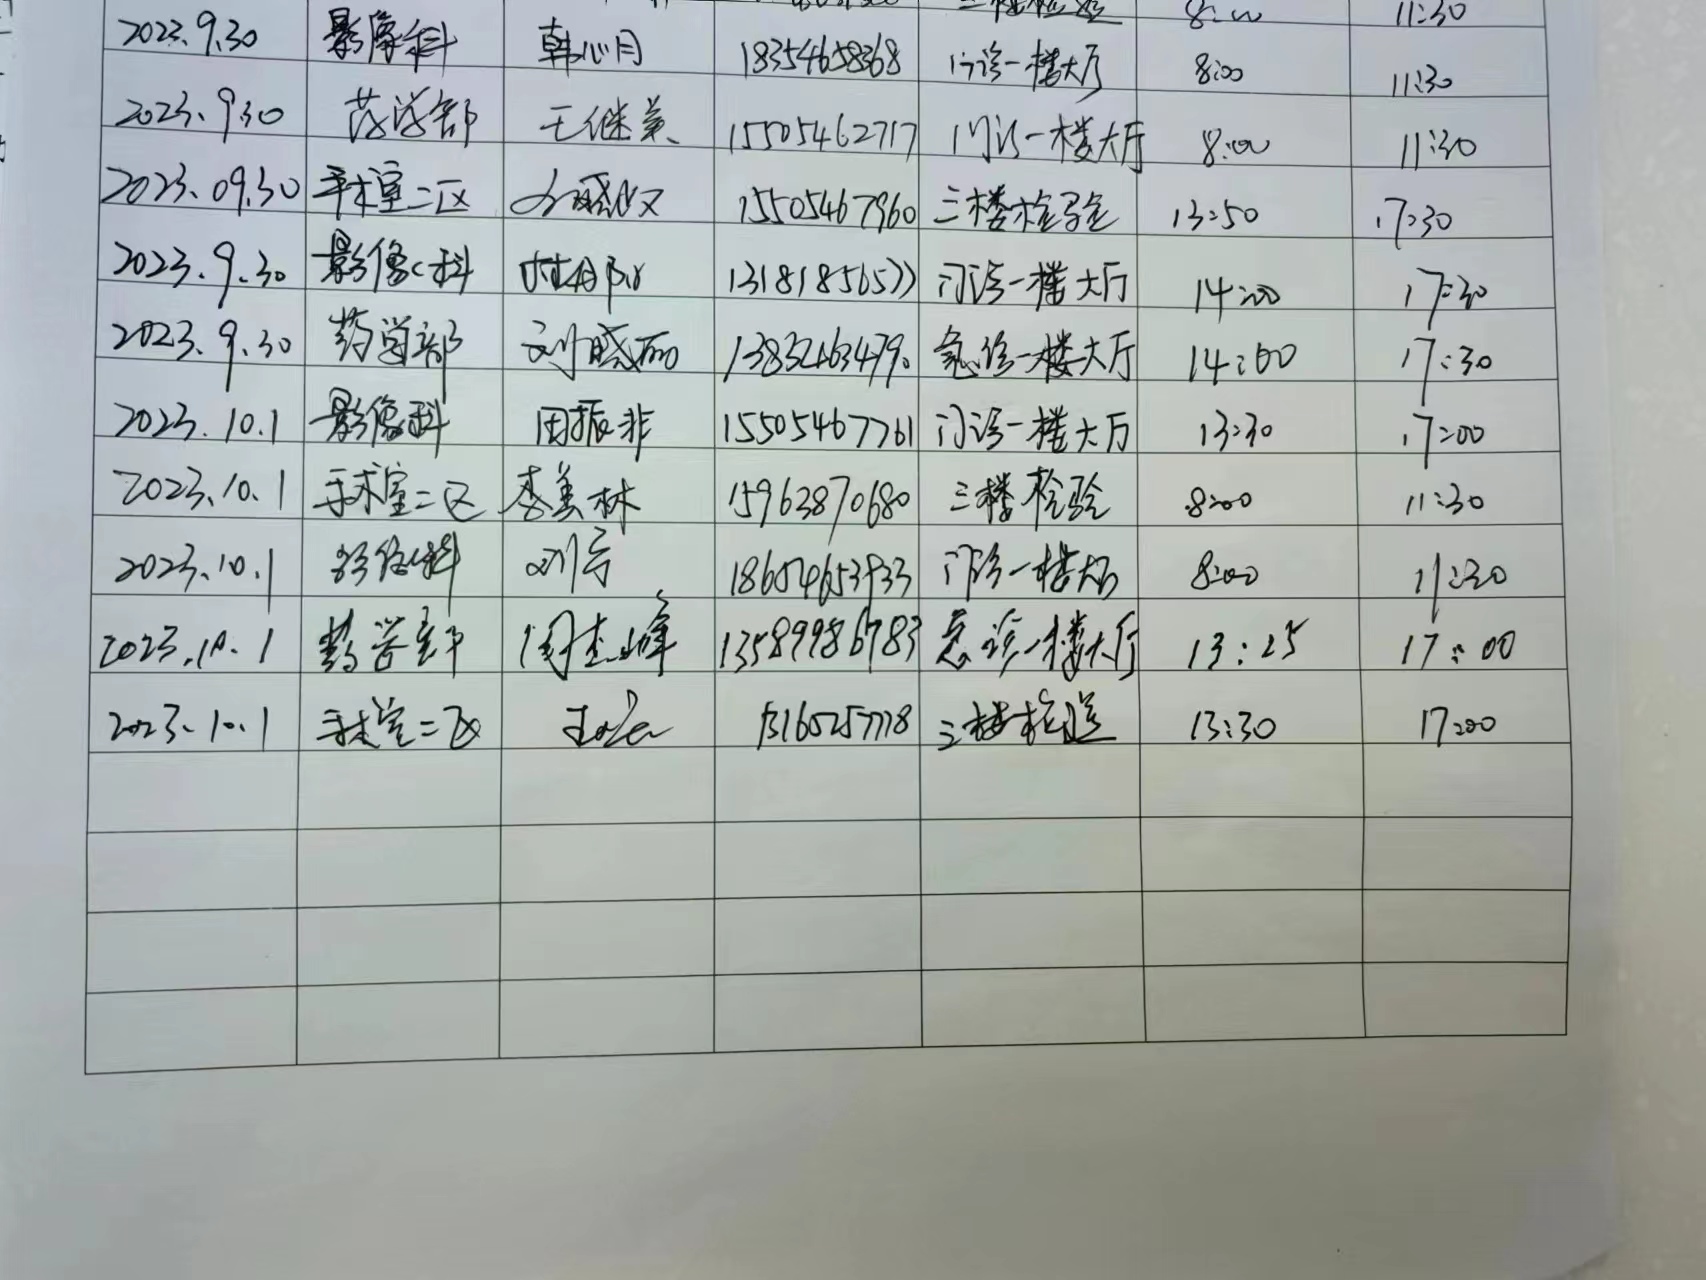 三楼检验 8:00 11:30
2023.9.30 影像科 韩心月 18354658368 门诊一楼大厅 8:00 11:30
2023.9.30 药学部 王继英 15505462717 门诊一楼大厅 8:00 11:30
2023.09.30 手术室二区 15505467960 三楼检验 13:50 17:30
2023.9.30 影像科 13181856577 门诊一楼大厅 14:00 17:30
2023.9.30 药学部 刘晓丽 急诊一楼大厅 14:00 17:30
2023.10.1 影像科 周振非 15505467761 门诊一楼大厅 13:30 17:00
2023.10.1 手术室二区 李美林 15963870680 三楼检验 8:00 11:30
2023.10.1 影像科 18654653933 门诊一楼大厅 8:00 11:30
2023.10.1 药学部 周杰峰 13589986783 急诊一楼大厅 13:25 17:00
2023.10.1 手术室二区 三楼检验 13:30 17:00